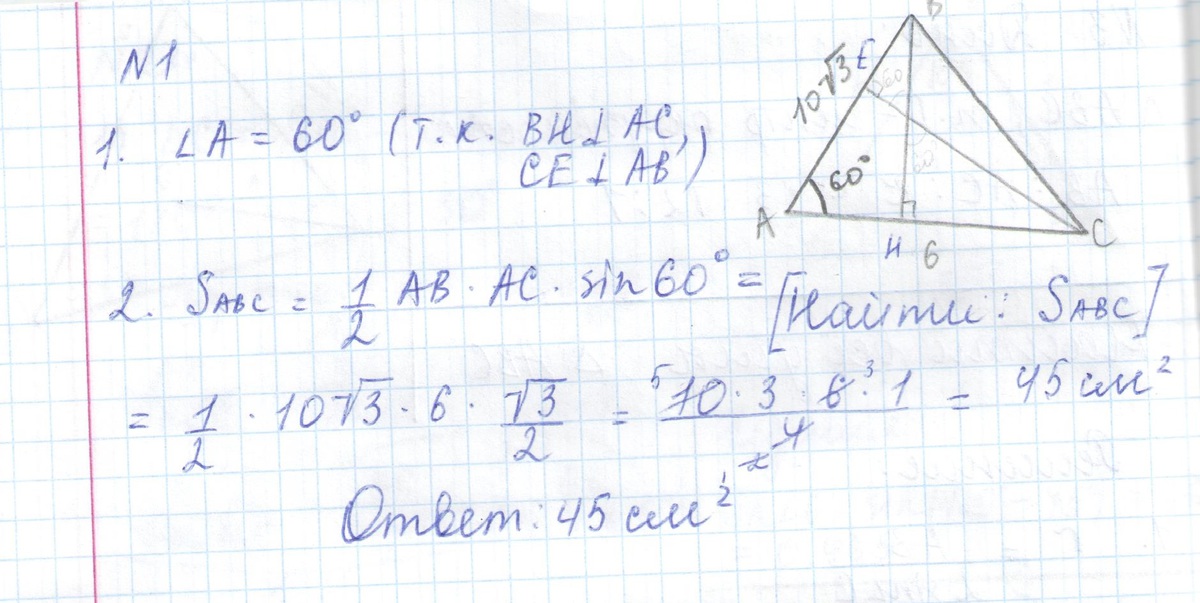 N1
1. ∠A = 60° (т.к. BH⊥AC,
CE⊥AB)
B
E
10√3
60
60°
60
A
H
6
C
2. SABC = 1/2 AB · AC · sin60° =
[Найти: SABC]
= 1/2 · 10√3 · 6 · √3/2 = 5 10 · 3 · 6 3 · 1 / 4 2 = 45 см²
Ответ: 45 см²